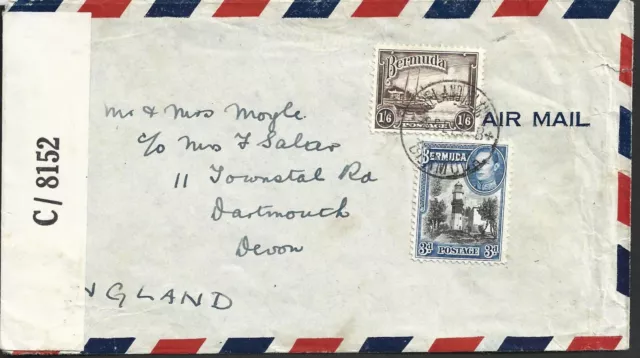 C/ 8152
Bermuda
1/6 1/6
AIR MAIL
BERMUDA
3d POSTAGE 3d
Mr & Mrs Moyle.
c/o Mrs F Salter
11 Townstal Rd
Dartmouth
Devon
NGLAND